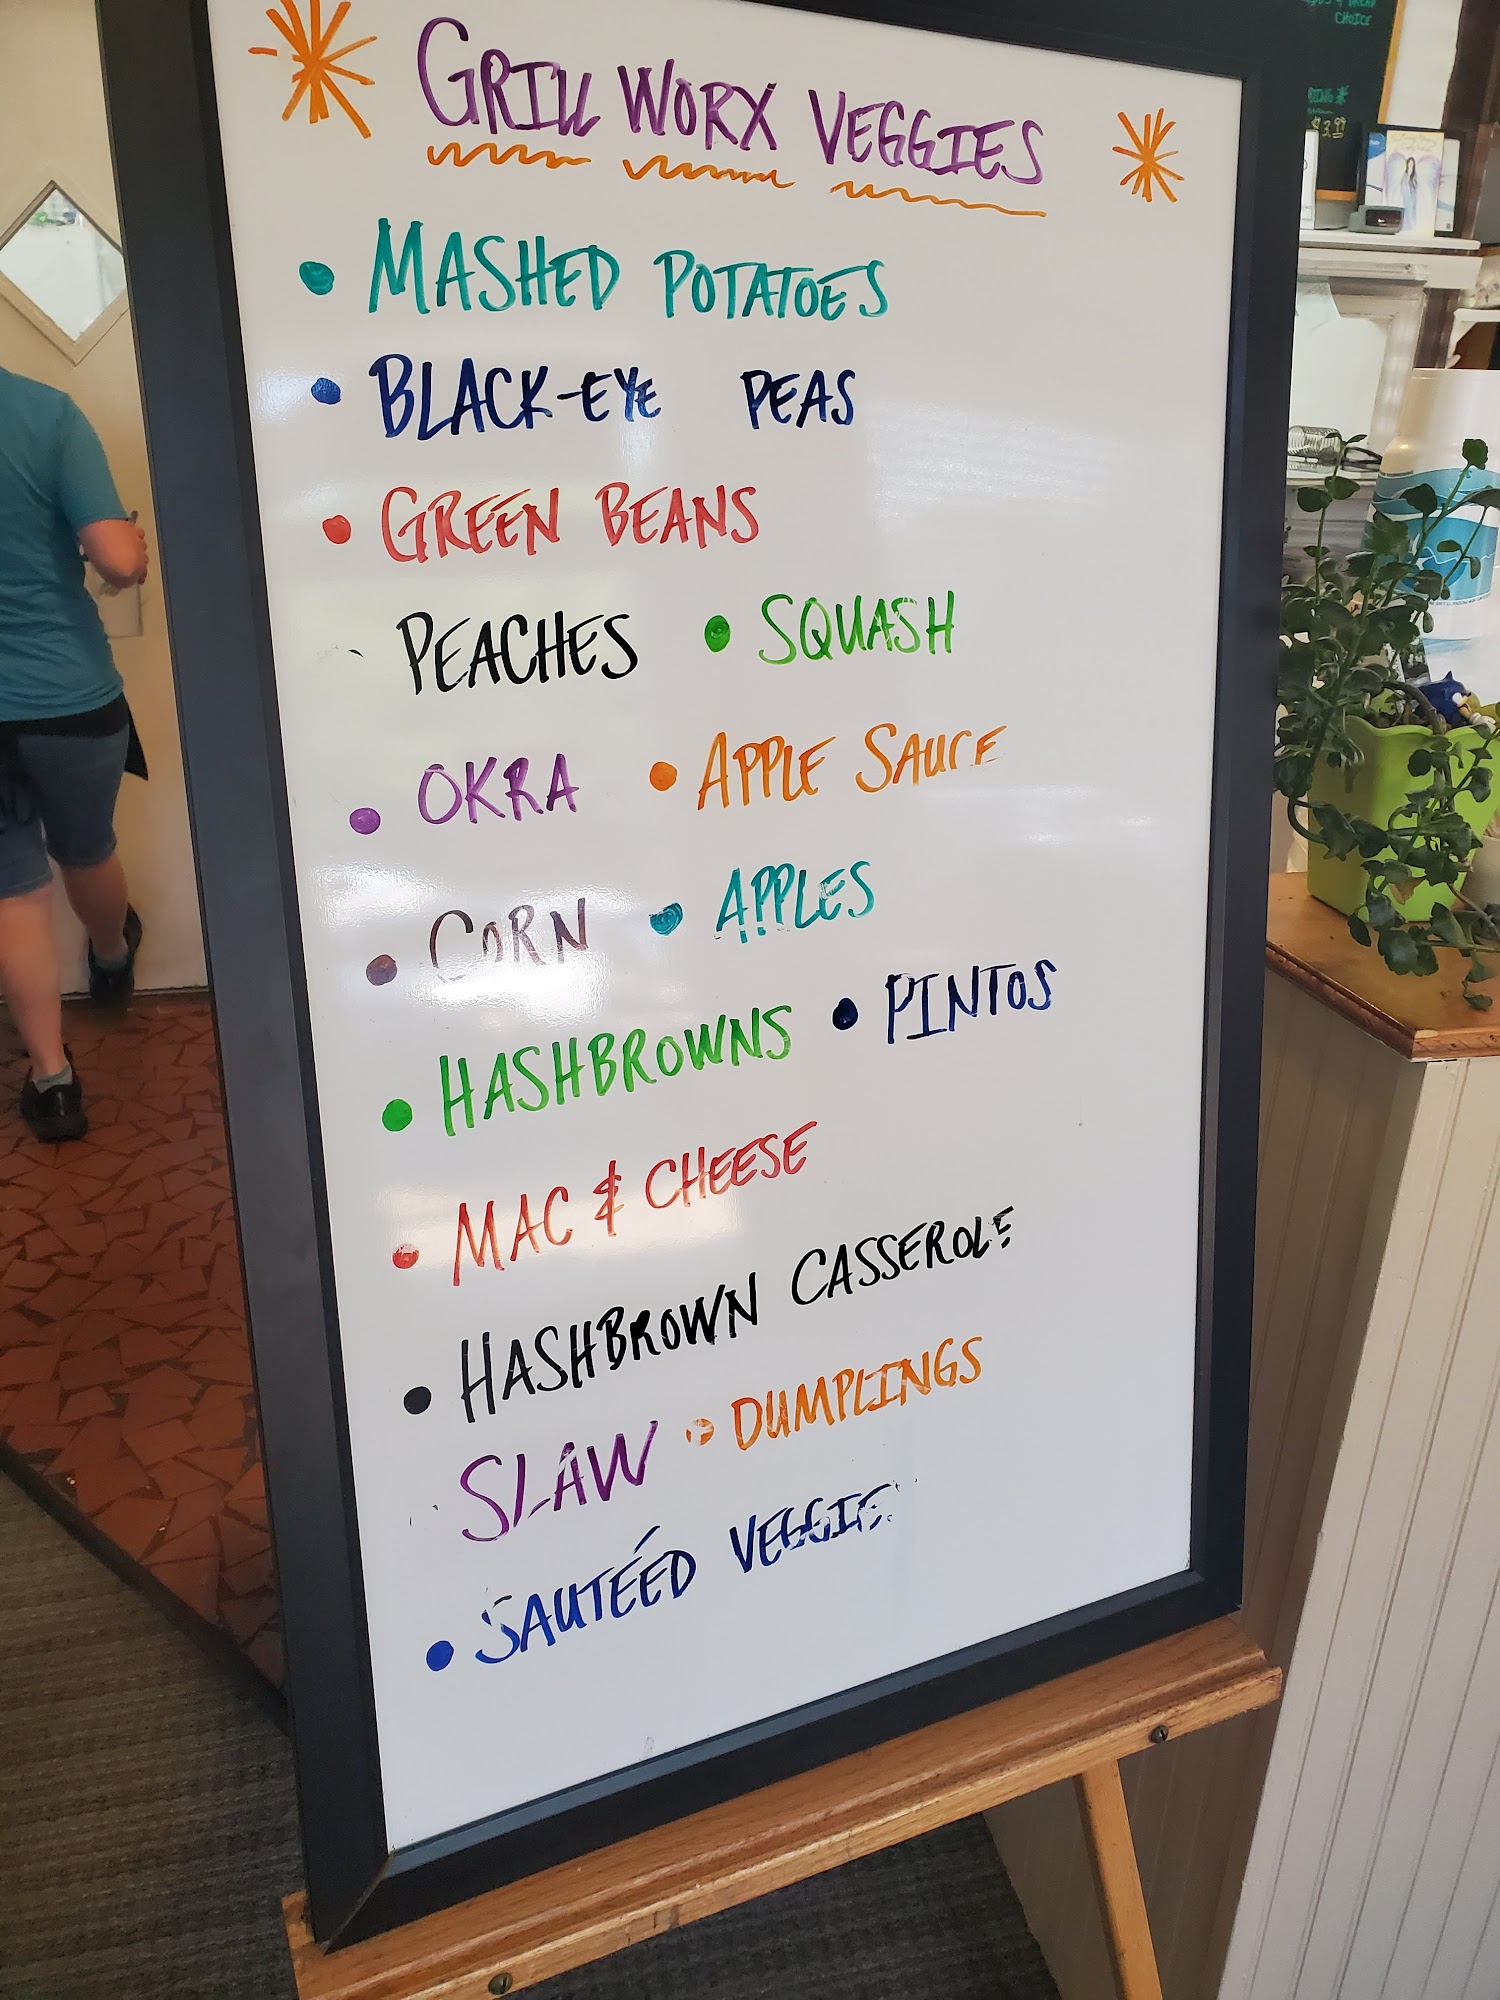 GRILL WORX VEGGIES
• MASHED POTATOES
• BLACK-EYE PEAS
• GREEN BEANS
PEACHES • SQUASH
• OKRA • APPLE SAUCE
• CORN • APPLES
• HASHBROWNS • PINTOS
• MAC & CHEESE
• HASHBROWN CASSEROLE
SLAW • DUMPLINGS
• SAUTÉED VEGGIE
CHOICE
$3.99